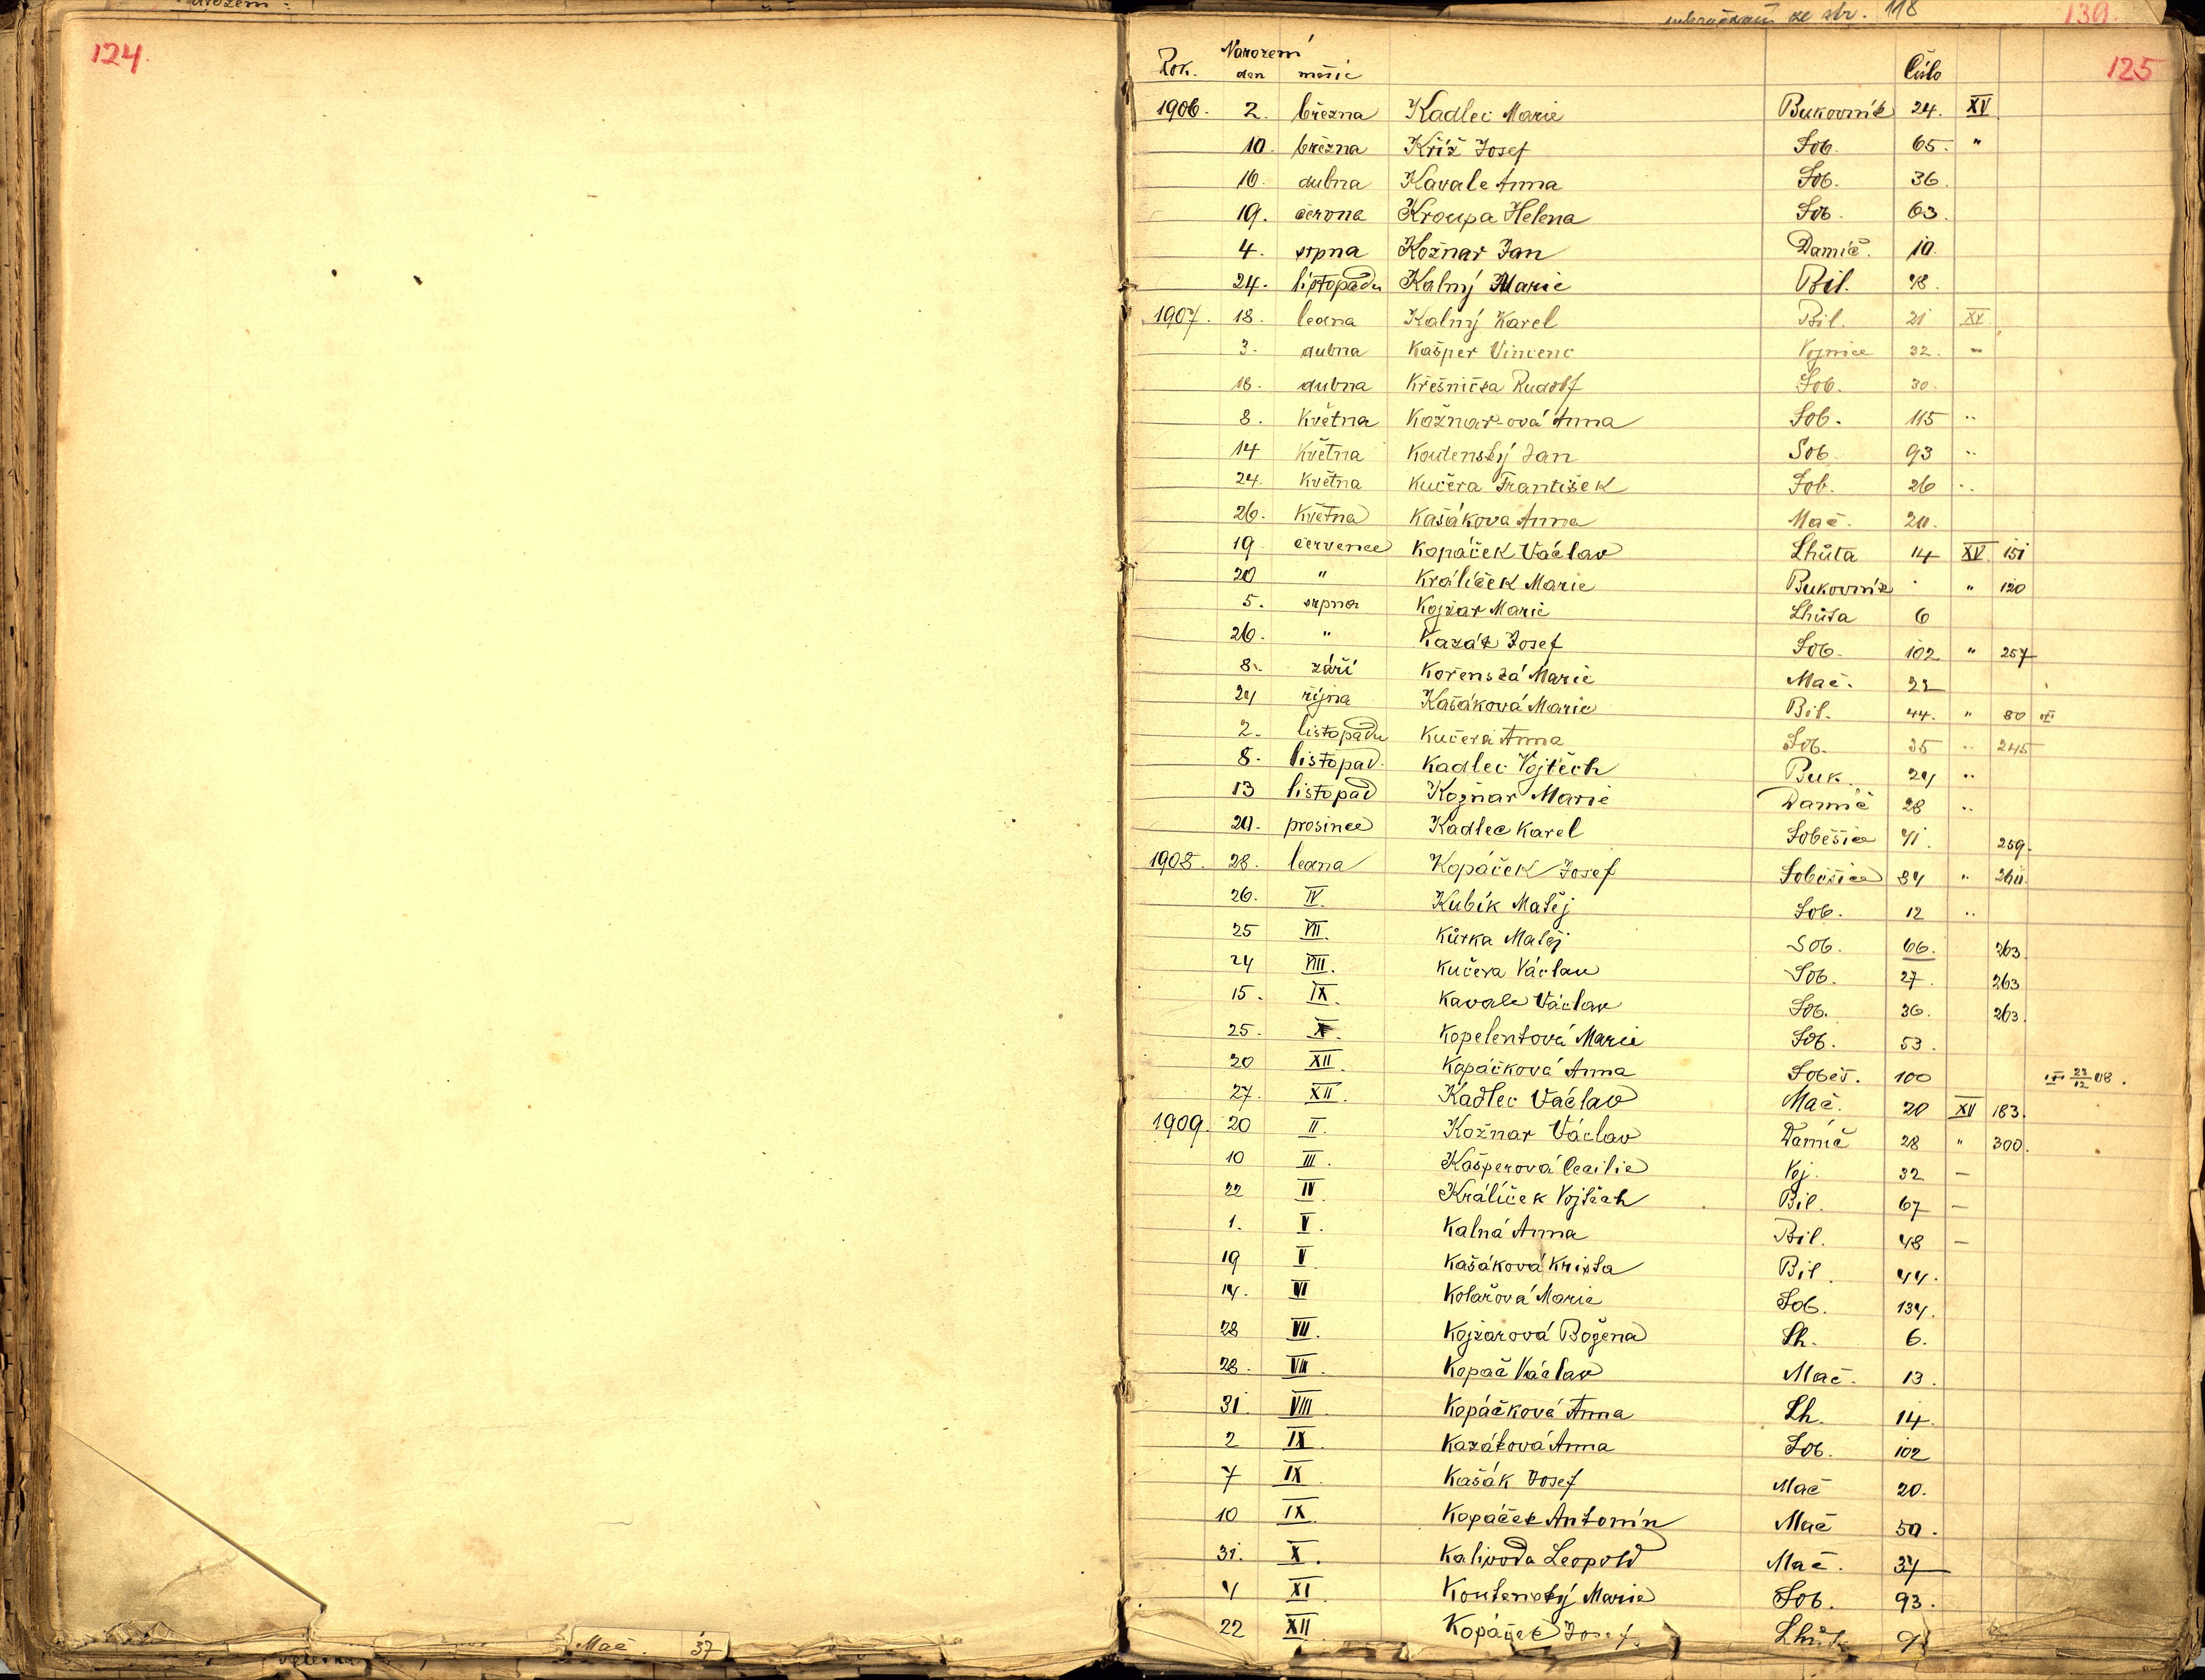 124.
pokračování ze str. 118
130.
125
Narození
Rok. den měsíc Číslo
1906. 2. března Kadlec Marie Bukovník 24. XV.
10. března Kříž Josef Sob. 65. "
16. dubna Kavale Anna Sob. 36.
19. června Kroupa Helena Sob. 63.
4. srpna Kožnar Jan Damíč. 10.
24. listopadu Kalný Marie Bil. 48.
1907. 18. ledna Kalný Karel Bil. 21 XV.
3. dubna Kašper Vincenc Vojnice 32. "
18. dubna Křešnička Rudolf Sob. 30.
8. května Kožnar-ová Anna Sob. 115 "
14 května Koutenský Jan Sob. 93 "
24. května Kučera František Sob. 26 "
26. května Kašákova Anna Mač. 20.
19 července Kopáček Václav Lhůta 14 XV. 151
20 " Králíček Marie Bukovník " 120
5. srpna Kojzar Marie Lhůta 6
26. " Kazák Josef Sob. 102 " 257
8. září Kořenská Marie Mač. 22
24 října Kašáková Marie Bil. 44. " 80
2. listopadu Kučera Anna Sob. 35 " 245
8. listopad. Kadlec Vojtěch Buk. 24 "
13 listopad Kožnar Marie Damíč 28 "
20. prosince Kadlec Karel Soběšice 41. 259.
1908. 28. ledna Kopáček Josef Soběšice 84 " 260.
26. IV. Kubík Matěj Sob. 12 "
25 VII. Kůrka Matěj Sob. 66. 263.
24 VIII. Kučera Václav Sob. 27. 263
15. IX. Kavale Václav Sob. 36. 263.
25. X. Kopelentová Marie Sob. 53.
20 XII. Kopáčková Anna Soběš. 100 23/12 08.
27. XII. Kadlec Václav Mač. 20 XV 183.
1909. 20 II. Kožnar Václav Damíč 28 " 300.
10 III. Kašperová Cecilie Voj. 32 –
22 IV Králíček Vojtěch Bil. 67 –
1. V. Kalná Anna Bil. 48 –
19 V Kašáková Krista Bil. 44.
14. VI Kolářová Marie Sob. 134.
28 VII. Kojzarová Božena Lh. 6.
28. VII. Kopač Václav Mač. 13.
31. VIII Kopáčková Anna Lh. 14.
2 IX. Kazáková Anna Sob. 102
7 IX. Kašák Josef Mač 20.
10 IX. Kopáček Antonín Mač 50.
31. X. Kalivoda Leopold Mač. 37
4 XI. Koutenský Marie Sob. 93.
22 XII Kopáček Josef Lhůt 9
Mač. 37